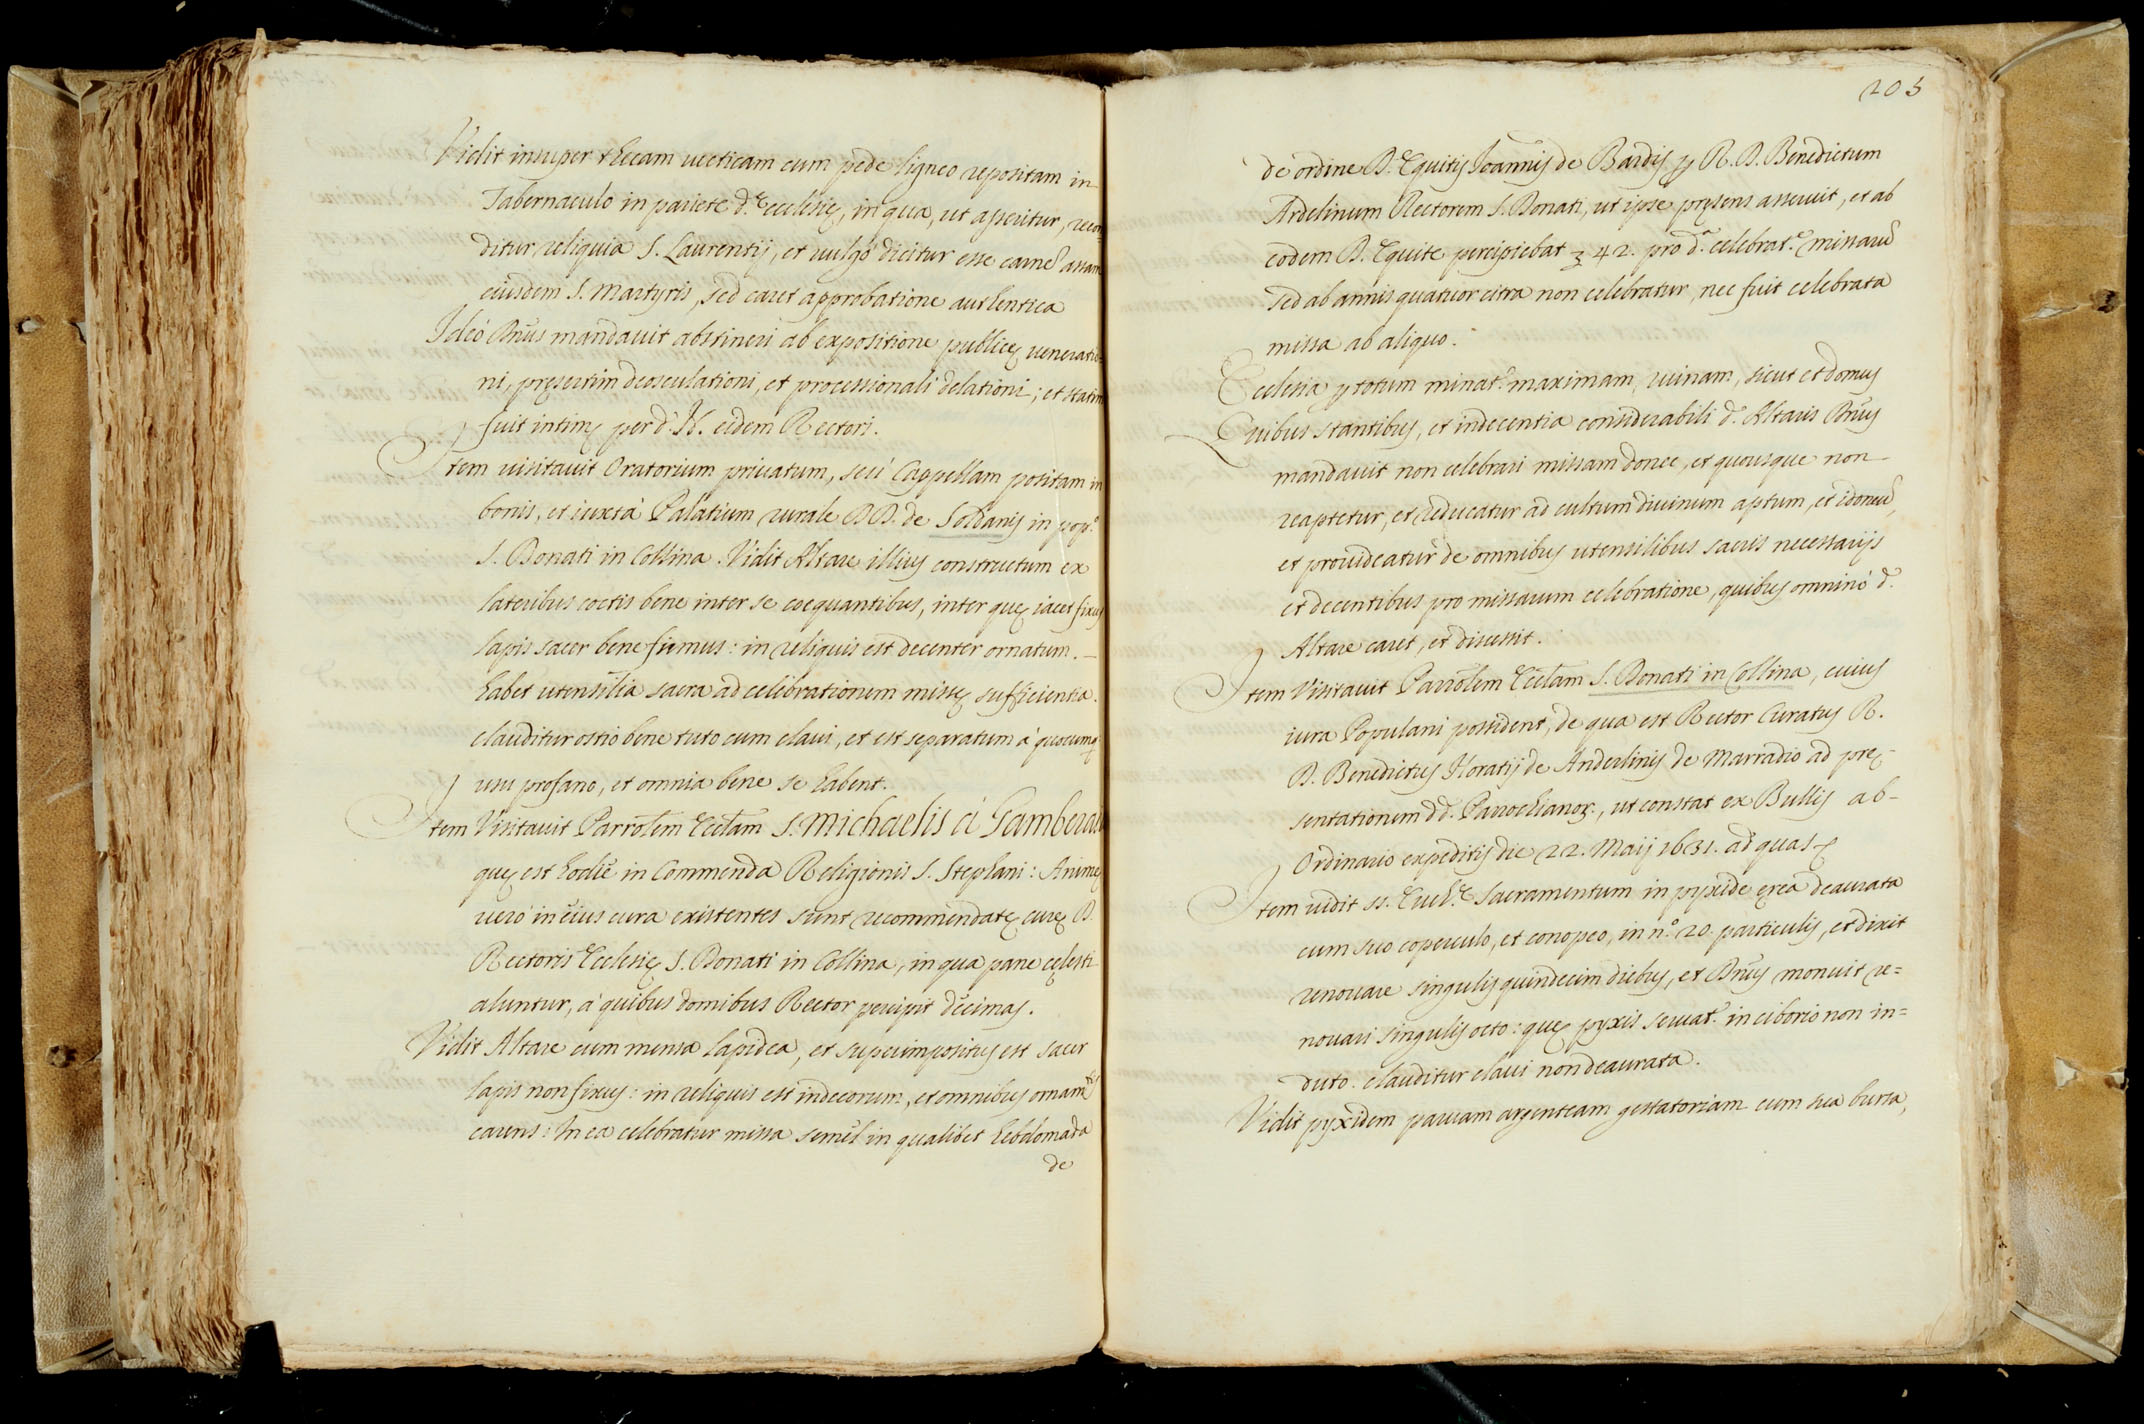 Vidit insuper thecam uecticam cum pede ligneo repositam in
Tabernaculo in pariete d.ę ecclesię, in qua, ut asseritur, recon-
ditur reliquia S. Laurentij, et uulgò dicitur esse carnē assam
eiusdem S. Martyris, sed caret approbatione authentica
Ideò Dn̄us mandauit abstineri ab expositione publicę ueneratio-
ni, pręsertim deosculationi, et processionali delationi; et statim
fuit intim. per d. N. eidem Rectori.
Item uisitauit Oratorium priuatum, seù Cappellam positam in
bonis, et iuxtà Palatium rurale DD. de Soldanis in pop.o
S. Donati in Collina. Vidit Altare illius constructum ex
lateribus coctis bene inter se coequantibus, inter quę iacet fixus
lapis sacer bene firmus: in reliquis est decenter ornatum. –
habet utensilia sacra ad celebrationem missę sufficientia.
clauditur ostio bene tuto cum claui, et est separatum à quocumq
usu profano, et omnia bene se habent.
Item Visitauit Parrolem Ecclam S. Michaelis à Gamberaia
quę est hodiè in Commenda Religionis S. Stephani: Animę
uerò in eius cura existentes sunt recommendatę curę D.
Rectoris Ecclesię S. Donati in Collina, in qua pane cęlesti
aluntur, à quibus domibus Rector percipit decimas.
Vidit Altare cum mensa lapidea, et superimpositus est sacer
lapis non fixus: in reliquis est indecorum, et omnibus ornamtis
carens: In ea celebratur missa semel in qualibet hebdomada
de
203
de ordine D. Equitis Ioannis de Bardis p R. D. Benedictum
Ardelinum Rectorem S. Donati, ut ipse pręsens asseruit, et ab
eodem D. Equite percipiebat 42. pro d.a celebrat.e missarū
sed ab annis quatuor citra non celebratur, nec fuit celebrata
missa ab aliquo.
Ecclesia p totum minat.r maximam ruinam, sicut et domus
Quibus stantibus, et indecentia considerabili d. Altaris Dn̄us
mandauit non celebrari missam donec, et quousque non
reaptetur, et reducatur ad cultum diuinum aptum, et idoneū,
et prouideatur de omnibus utensilibus sacris necessarijs
et decentibus pro missarum celebratione, quibus omninò d.
Altare caret, et discessit.
Item Visitauit Parrolem Ecclam S. Donati in Collina, cuius
iura Populani possident, de qua est Rector Curatus R.
D. Benedictus Horatij de Anderlinis de Marradio ad prę-
sentationem dd. Parochianor., ut constat ex Bullis ab-
Ordinario expeditis die 22. Maij 1631. ad quas
Item uidit ss. Euch.ę Sacramentum in pyxide ęrea deaurata
cum suo coperculo, et conopeo, in n.o 20. particulis, et dixit
renouare singulis quindecim diebus, et Dn̄us monuit re=
nouari singulis octo: quę pyxis seruat.r in ciborio non in=
duto. clauditur claui non deaurata.
Vidit pyxidem paruam argenteam gestatoriam cum sua bursa,